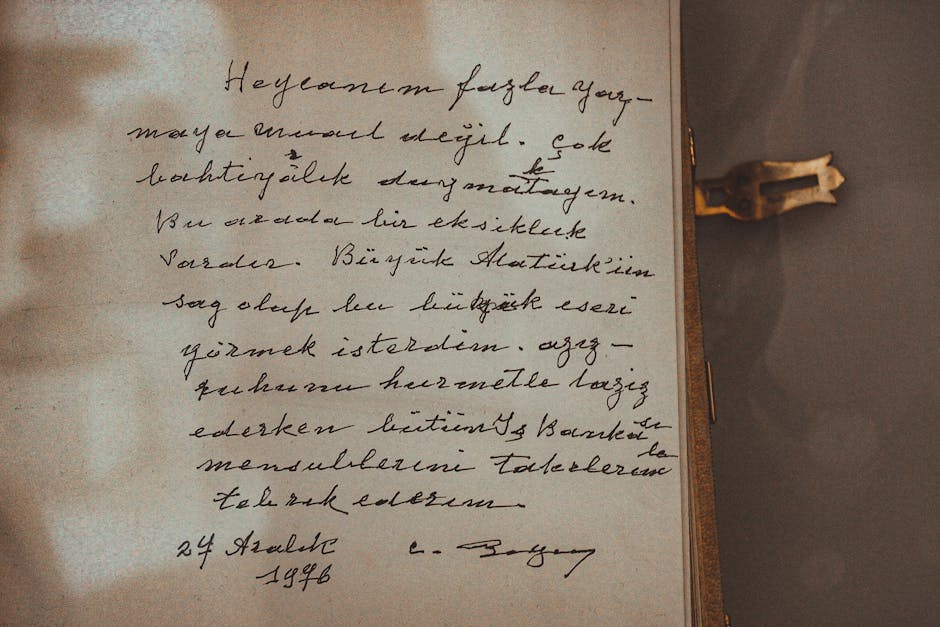 Heycanım fazla yaz-
maya müsait değil. Çok
bahtiyârlık duymaktayım.
Bu arada bir eksikluk
vardır. Büyük Atatürk'ün
sag olup bu büyük eseri
görmek isterdim. aziz-
ruhunu hurmetle taziz
ederken bütün İş Bankası
mensublerini takdirlerimle
tebrik ederim.
27 Aralık C. Bayar
1976